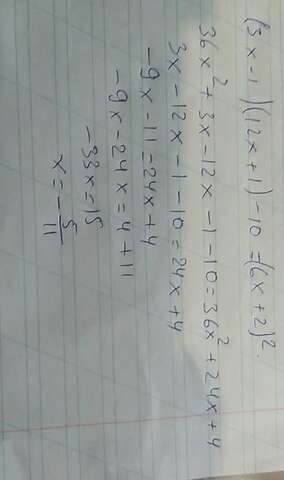 (3x-1)(12x+1)-10=(6x+2)².
36x²+3x-12x-1-10=36x²+24x+4
3x-12x-1-10=24x+4
-9x-11=24x+4
-9x-24x=4+11
-33x=15
x=-5/11